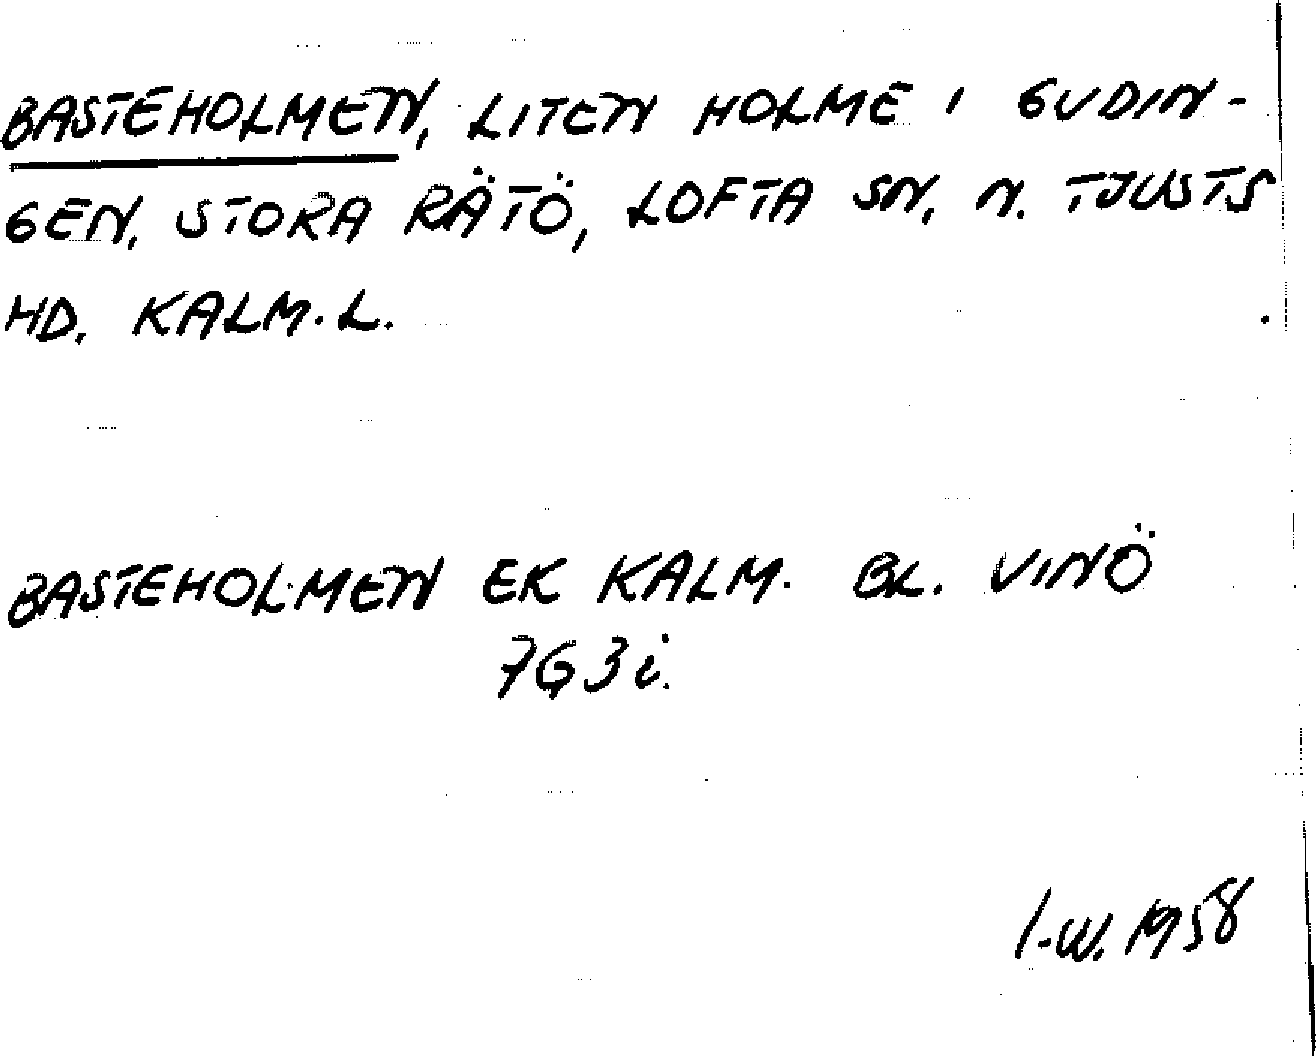 BASTEHOLMEN, LITEN HOLME I GUDIN-
GEN, STORA RÄTÖ, LOFTA SN, N. TJUSTS
HD. KALM. L.
BASTEHOLMEN EK KALM. BL. VINÖ
7G3i.
I-W. 1958